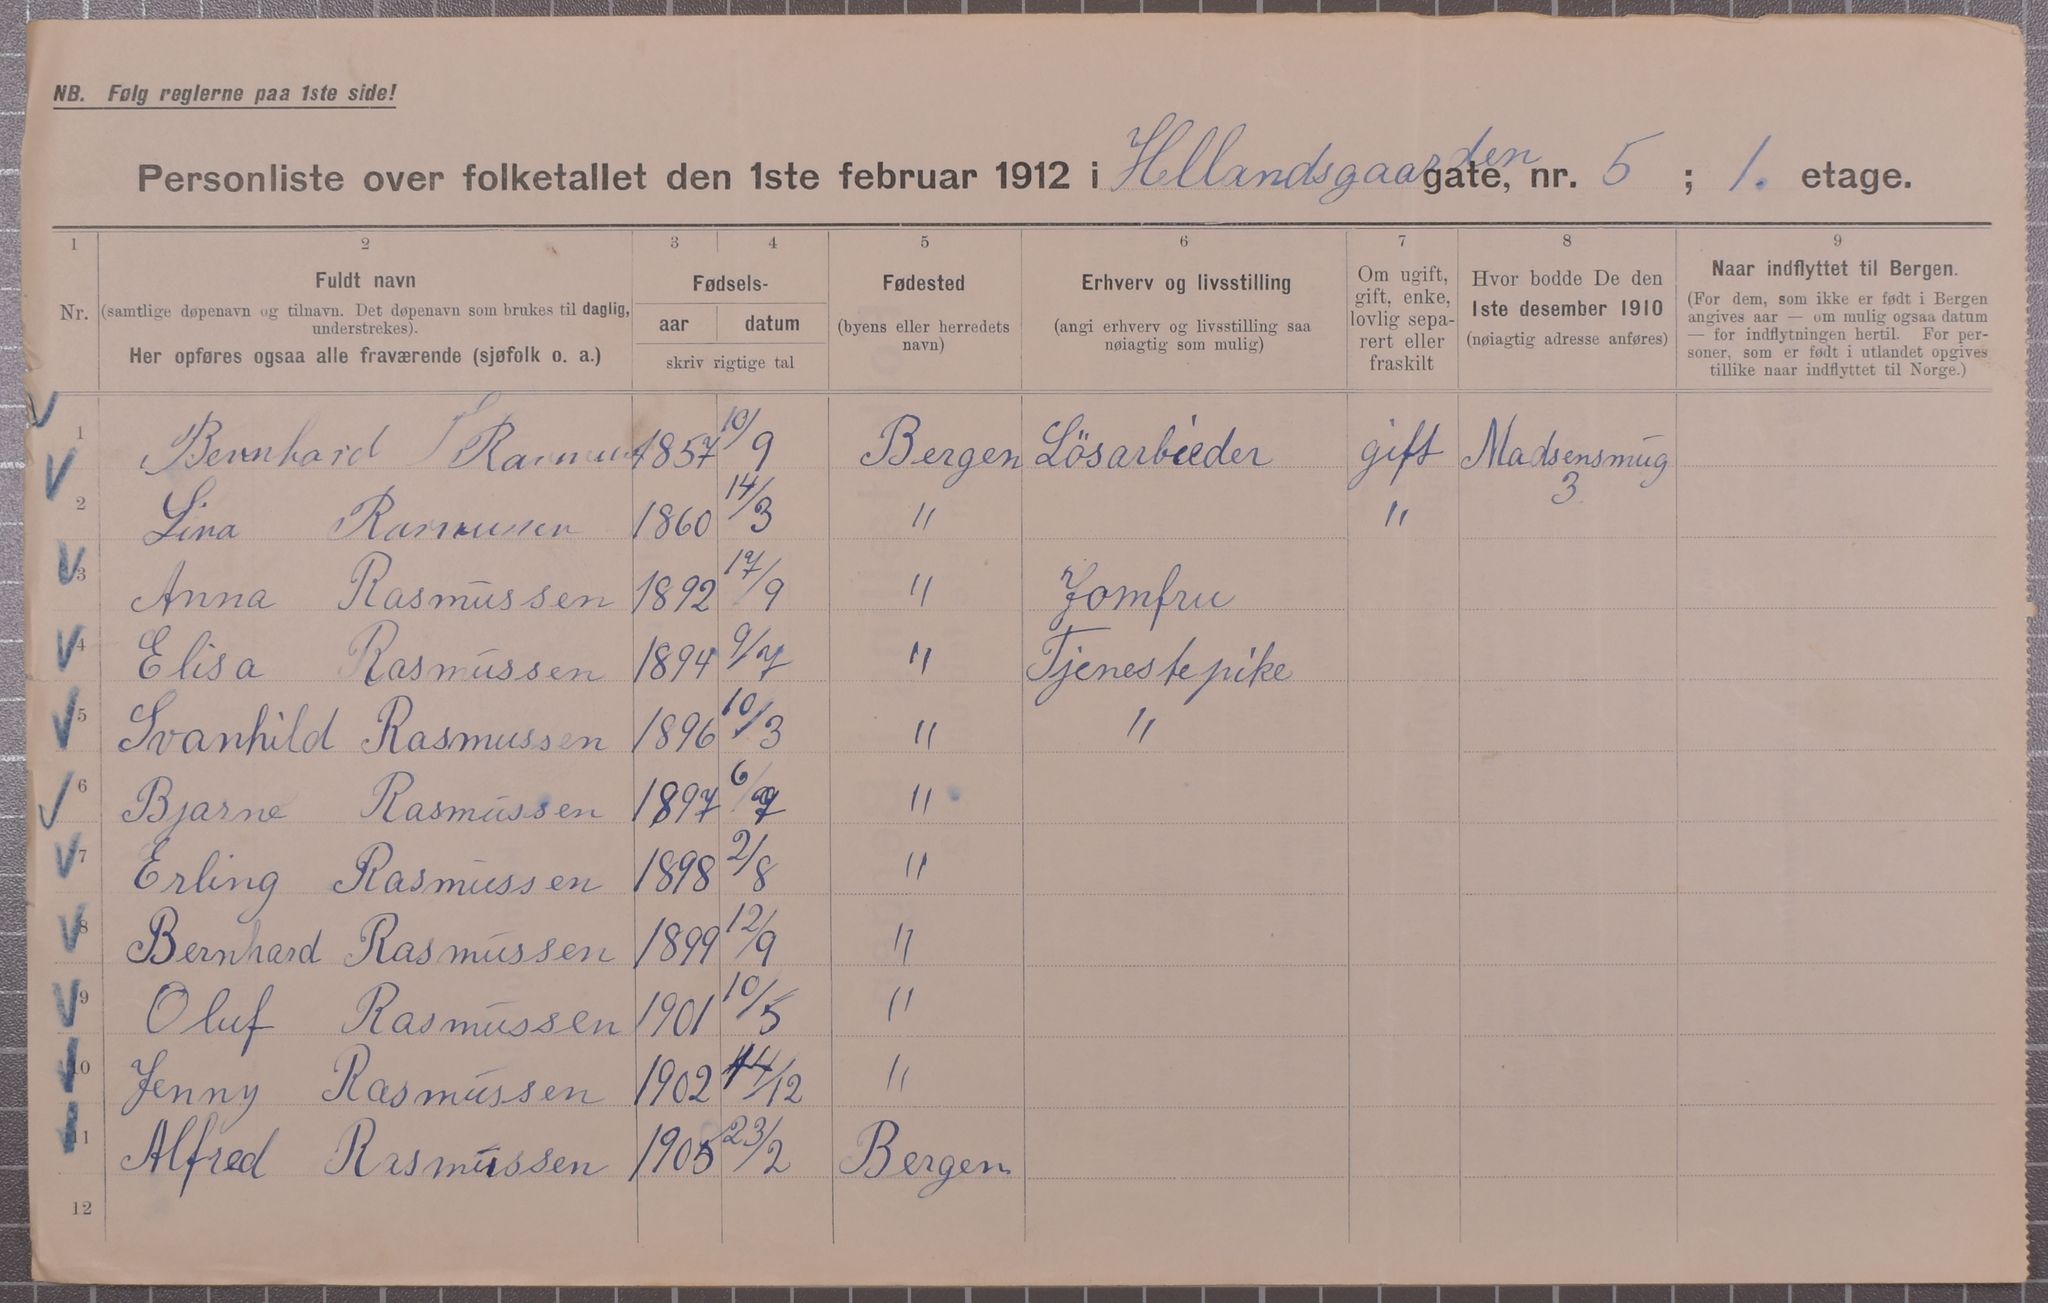 NB. Følg reglerne paa 1ste side!
Personliste over folketallet den 1ste februar 1912 i Hellandsgaarden gate, nr. 5 ; 1. etage.
1 2 3 4 5 6 7 8 9
Nr.
Fuldt navn
(samtlige døpenavn og tilnavn. Det døpenavn som brukes til daglig,
understrekes).
Her opføres ogsaa alle fraværende (sjøfolk o. a.)
Fødsels-
aar datum
skriv rigtige tal
Fødested
(byens eller herredets
navn)
Erhverv og livsstilling
(angi erhverv og livsstilling saa
nøiagtig som mulig)
Om ugift,
gift, enke,
lovlig sepa-
rert eller
fraskilt
Hvor bodde De den
1ste desember 1910
(nøiagtig adresse anføres)
Naar indflyttet til Bergen.
(For dem, som ikke er født i Bergen
angives aar — om mulig ogsaa datum
— for indflytningen hertil. For per-
soner, som er født i utlandet opgives
tillike naar indflyttet til Norge.)
1 Bernhard 1857 10/9 Bergen Lösarbeider gift Madsensmug
3
2 Lina Rasmussen 1860 14/3 " "
3 Anna Rasmussen 1892 17/9 " Jomfru
4 Elisa Rasmussen 1894 9/7 " Tjenestepike
5 Svanhild Rasmussen 1896 10/3 " "
6 Bjarne Rasmussen 1897 "
7 Erling Rasmussen 1898 2/8 "
8 Bernhard Rasmussen 1899 12/9 "
9 Oluf Rasmussen 1901 10/5 "
10 Jenny Rasmussen 1902 14/12 "
11 Alfred Rasmussen 1905 23/2 Bergen
12